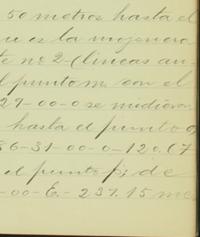 50 metros hasta el
u es la mojonera
te nº 2-(lineas au-
l punto m. con el
27-00-0 se midieron
hasta el punto o
56-31-00-0-120.67
el punto p; de
-00-E.- 237.15 me